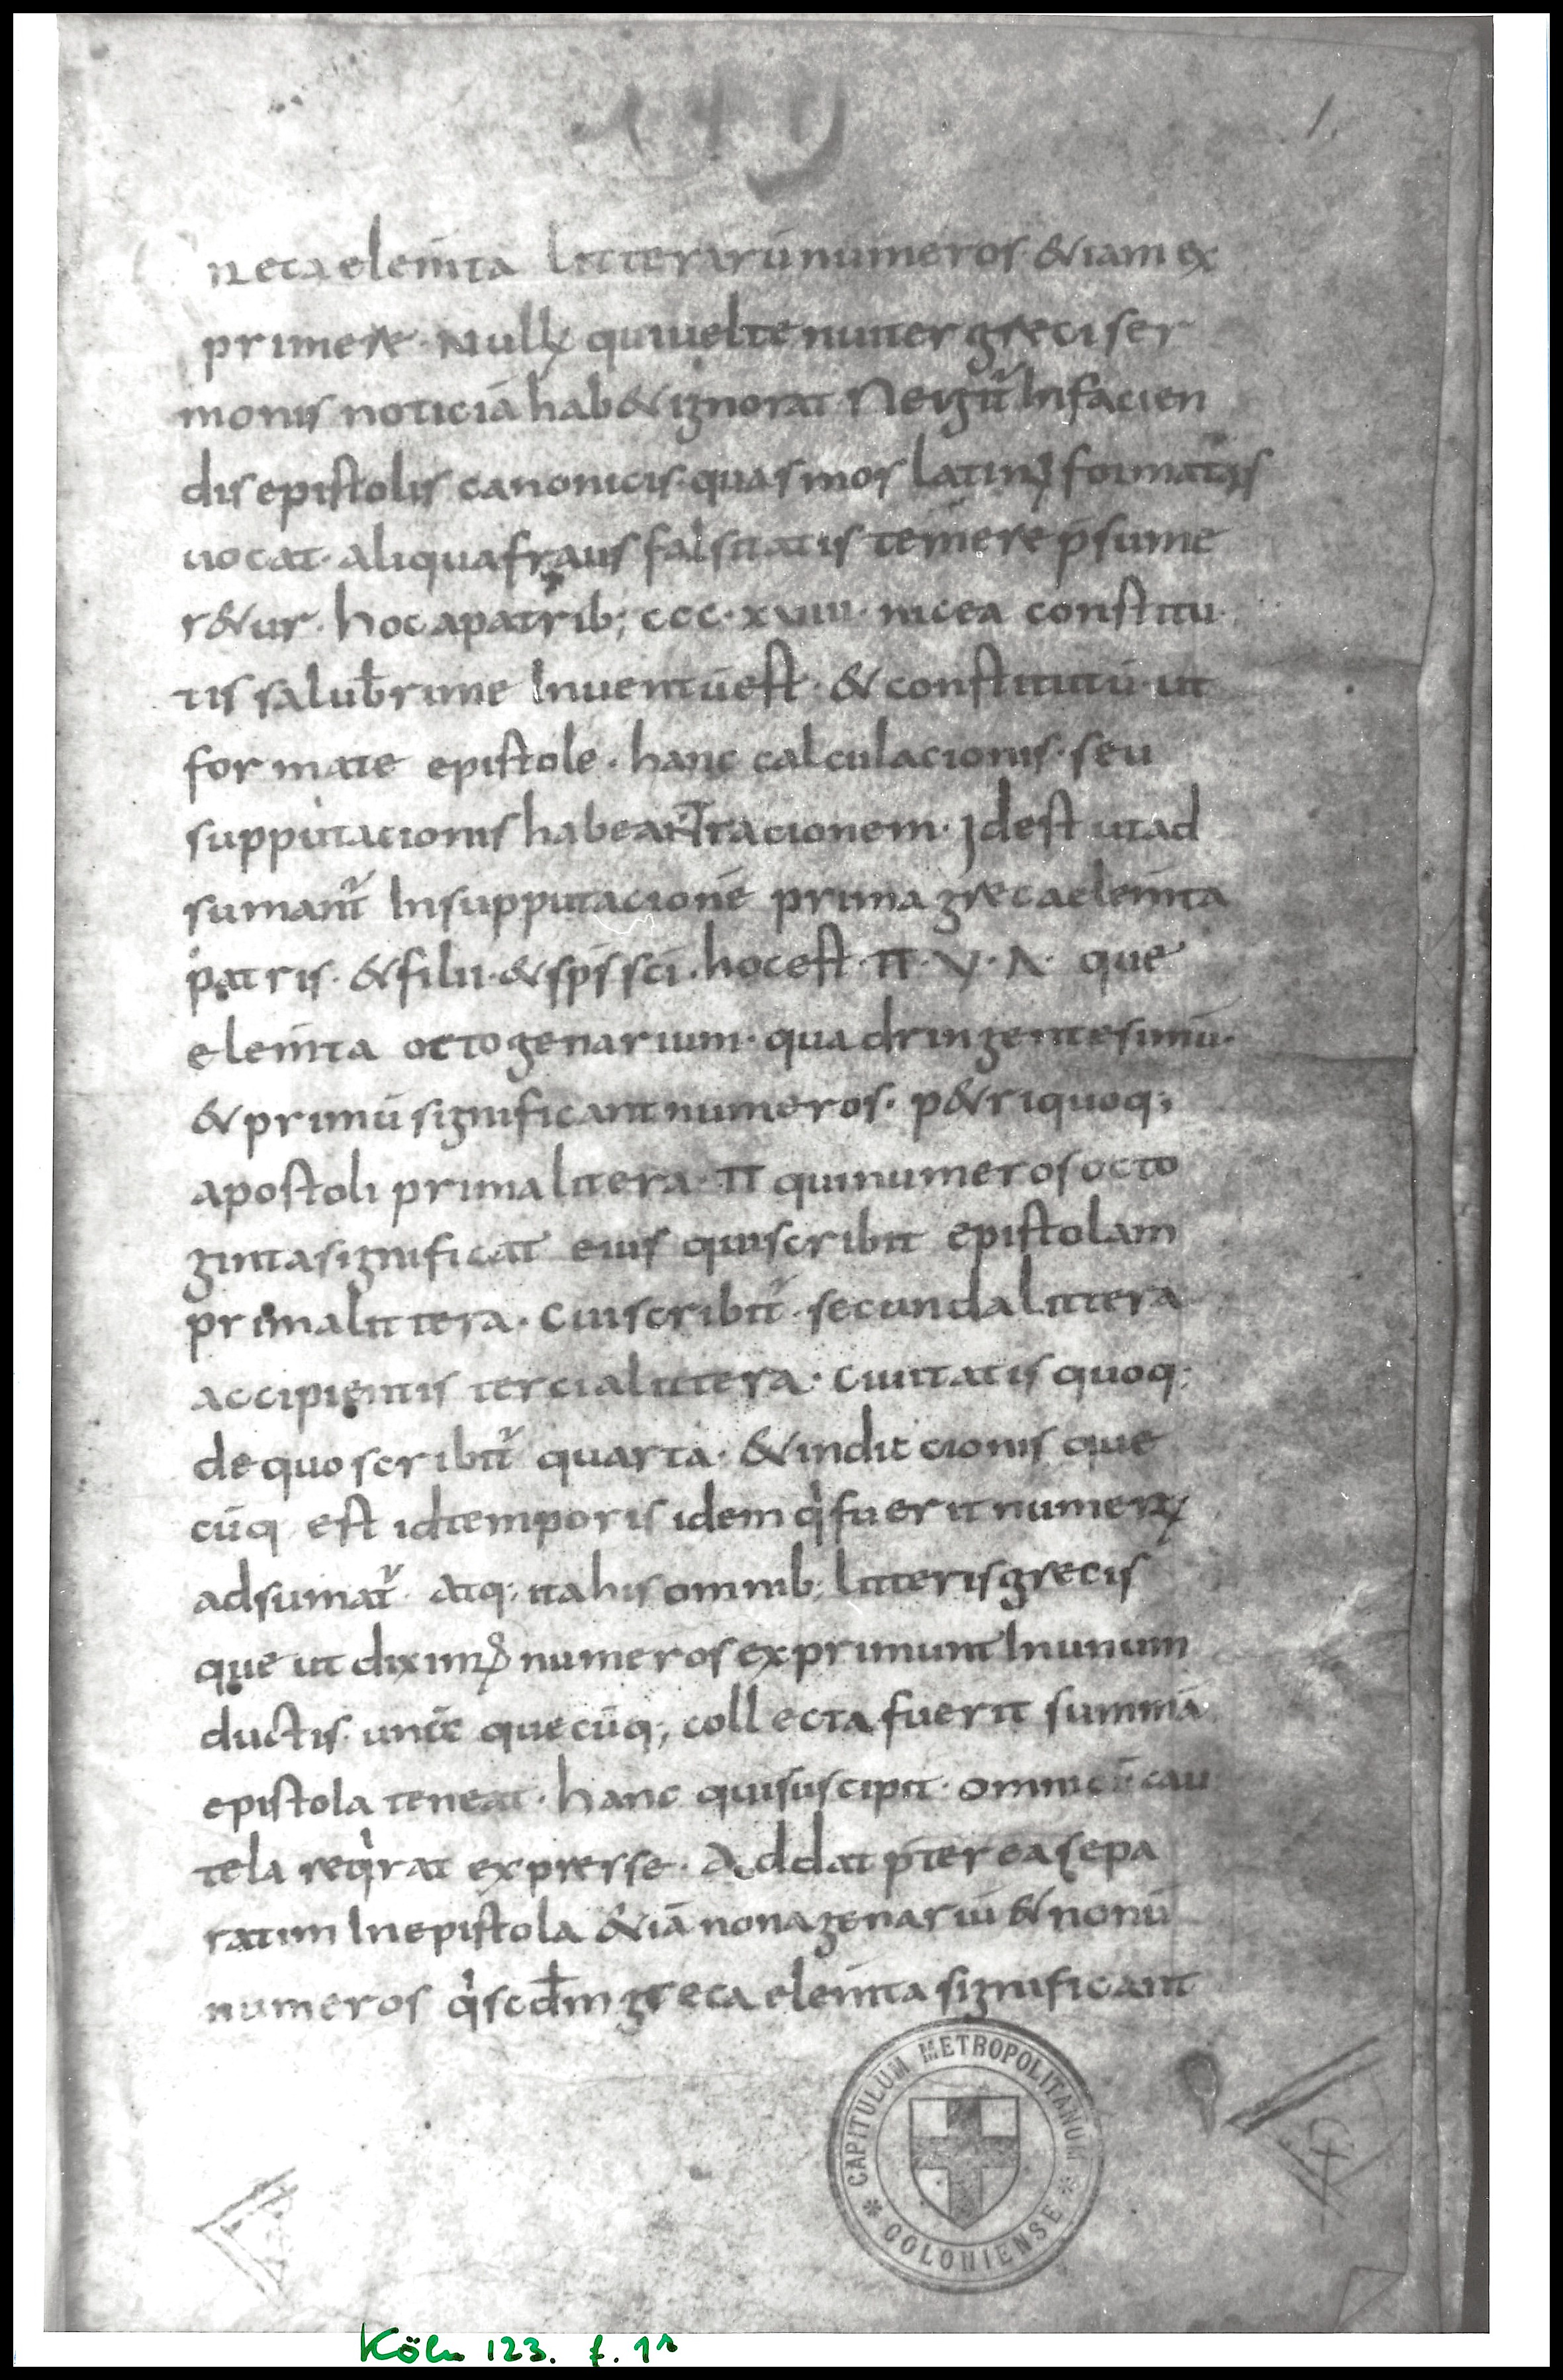 119
1.
Reca elem̅ta litterarū numeros &iam ex
primere. Null᷒ qui uel tenuiter greci ser
monis noticiā hab& ignorat. Ne igit᷑ In facien
dis epistolis canonicis. quas mos latin᷒ formatas
uocat. aliqua fraus falsitatis temere p̄sume
r&ur. hoc a patrib; ccc. xviii. nicea constitu
tis salub̄rime Inuentū est. & constitutū ut
formate epistole. hanc calculacionis. seu
supputacionis habeant racionem. Id est ut ad
sumant᷑ In supputacione prima greca elem̅ta
patris. & filii. & sp̅s sc̅i. hoc est. π. Υ. Λ. que
elem̅ta octogenarium. quadringentesimū.
& primū significant numeros. p&ri quoq;
apostoli prima litera. π qui numeros octo
ginta significat eius qui scribit epistolam
prima littera. cui scribit᷑. secunda littera
accipientis tercia littera. ciuitatis quoq;
de quo scribit᷑ quarta. & indiccionis que
cūq est id temporis idem qͥ fuerit numer᷒
adsumat᷑. atq; ita his omnib; litteris grecis
que ut diximꝰ numeros exprimunt In unum
ductis. unā quecūq; collecta fuerit summā
epistola teneat. hanc qui suscipit. omni cū cau
tela reqͥrat expresse. Addat p̄terea sepa
ratim In epistola &iā nonagenariū & nonū
numeros qͥ scd̅m greca elem̅ta significant
CAPITULUM METROPOLITANUM
* COLONIENSE *
Köln 123. f. 1r